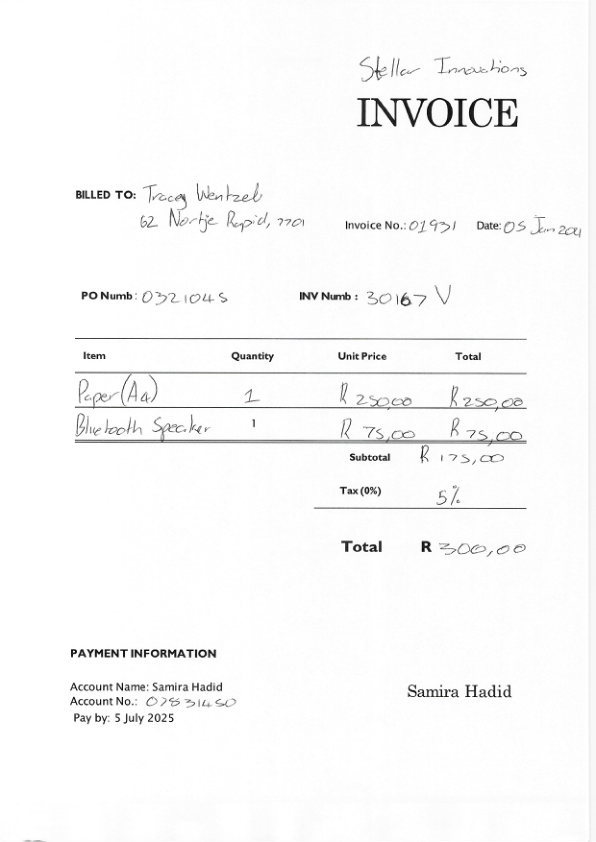 Stellar Innovations
INVOICE
BILLED TO: Tracey Wentzel
62 Nortje Rapid, 7701
Invoice No.: 01931 Date: 05 Jan
PO Numb: 0321045 INV Numb: 30167 V
Item Quantity Unit Price Total
Paper (A4) 1 R 250,00 R 250,00
Bluetooth Speaker 1 R 75,00 R 75,00
Subtotal R 175,00
Tax (0%) 5%
Total R 300,00
PAYMENT INFORMATION
Account Name: Samira Hadid
Samira Hadid
Account No.:
Pay by: 5 July 2025